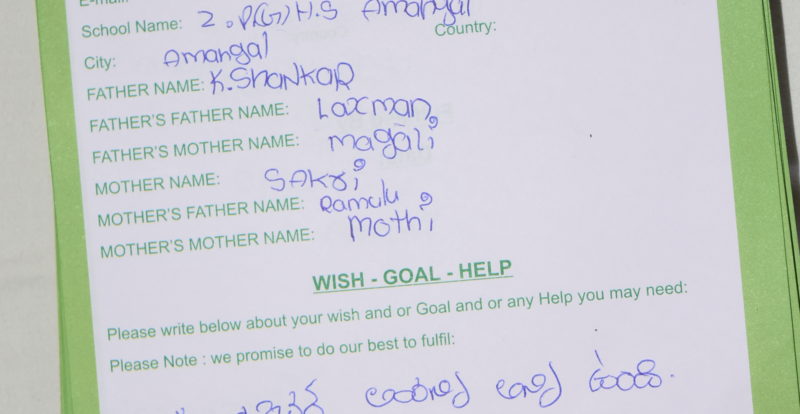 School Name: Z.P(G)H.S Amangal
Country:
City: Amangal
FATHER NAME: K.SHANKAR
FATHER'S FATHER NAME: Laxman
FATHER'S MOTHER NAME: magāli
MOTHER NAME: SAKri
MOTHER'S FATHER NAME: Ramulu
MOTHER'S MOTHER NAME: mothi
WISH - GOAL - HELP
Please write below about your wish and or Goal and or any Help you may need:
Please Note : we promise to do our best to fulfil: